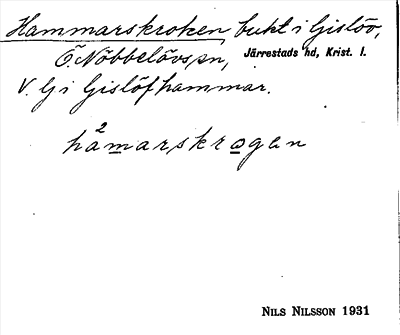 Hammarskroken, bukt i Gislöv,
Ö. Nöbbelövs sn, Järrestads hd, Krist. l.
V. Lj i Gislöfhammar.
ha²marskrogen
NILS NILSSON 1931